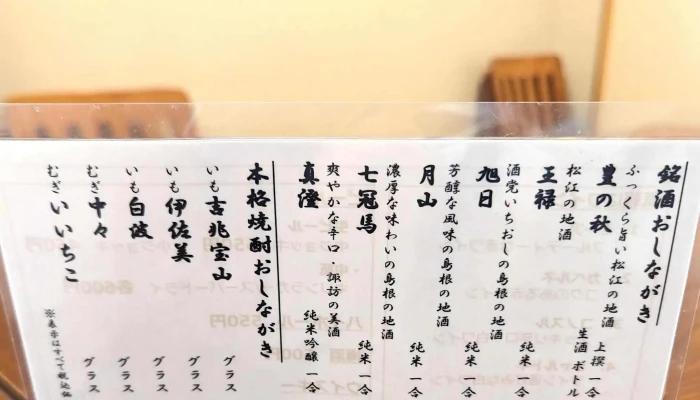 銘酒おしながき
ふっくら旨い松江の地酒
豊の秋 上撰 一合
生酒 ボトル
松江の地酒
王禄 純米 一合
酒党いちおしの島根の地酒
旭日 純米 一合
芳醇な風味の島根の地酒
月山 純米 一合
濃厚な味わいの島根の地酒
七冠馬 純米 一合
爽やかな辛口・諏訪の美酒
真澄 純米吟醸 一合
本格焼酎おしながき
いも 吉兆宝山 グラス
いも 伊佐美 グラス
いも 白波 グラス
むぎ 中々 グラス
むぎ いいちこ グラス
※表示はすべて税込価